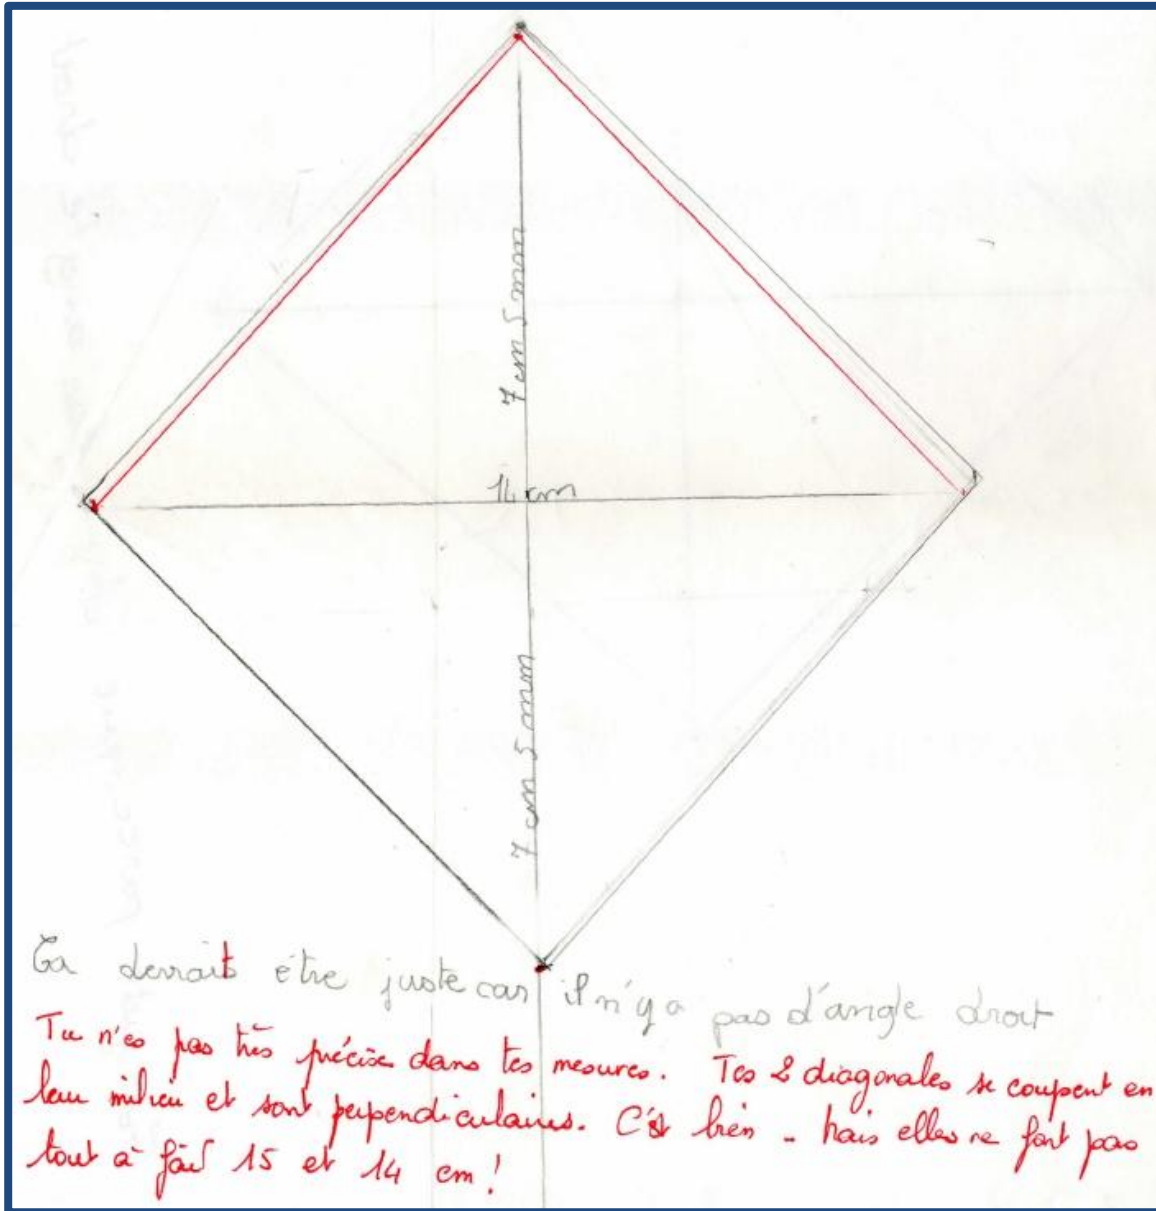 7 cm 5 mm
14 cm
7 cm 5 mm
Ça devrait être juste car il n'y a pas d'angle droit
Tu n'es pas très précise dans tes mesures. Tes 2 diagonales se coupent en
leur milieu et sont perpendiculaires. C'est bien - Mais elles ne font pas
tout à fait 15 et 14 cm !